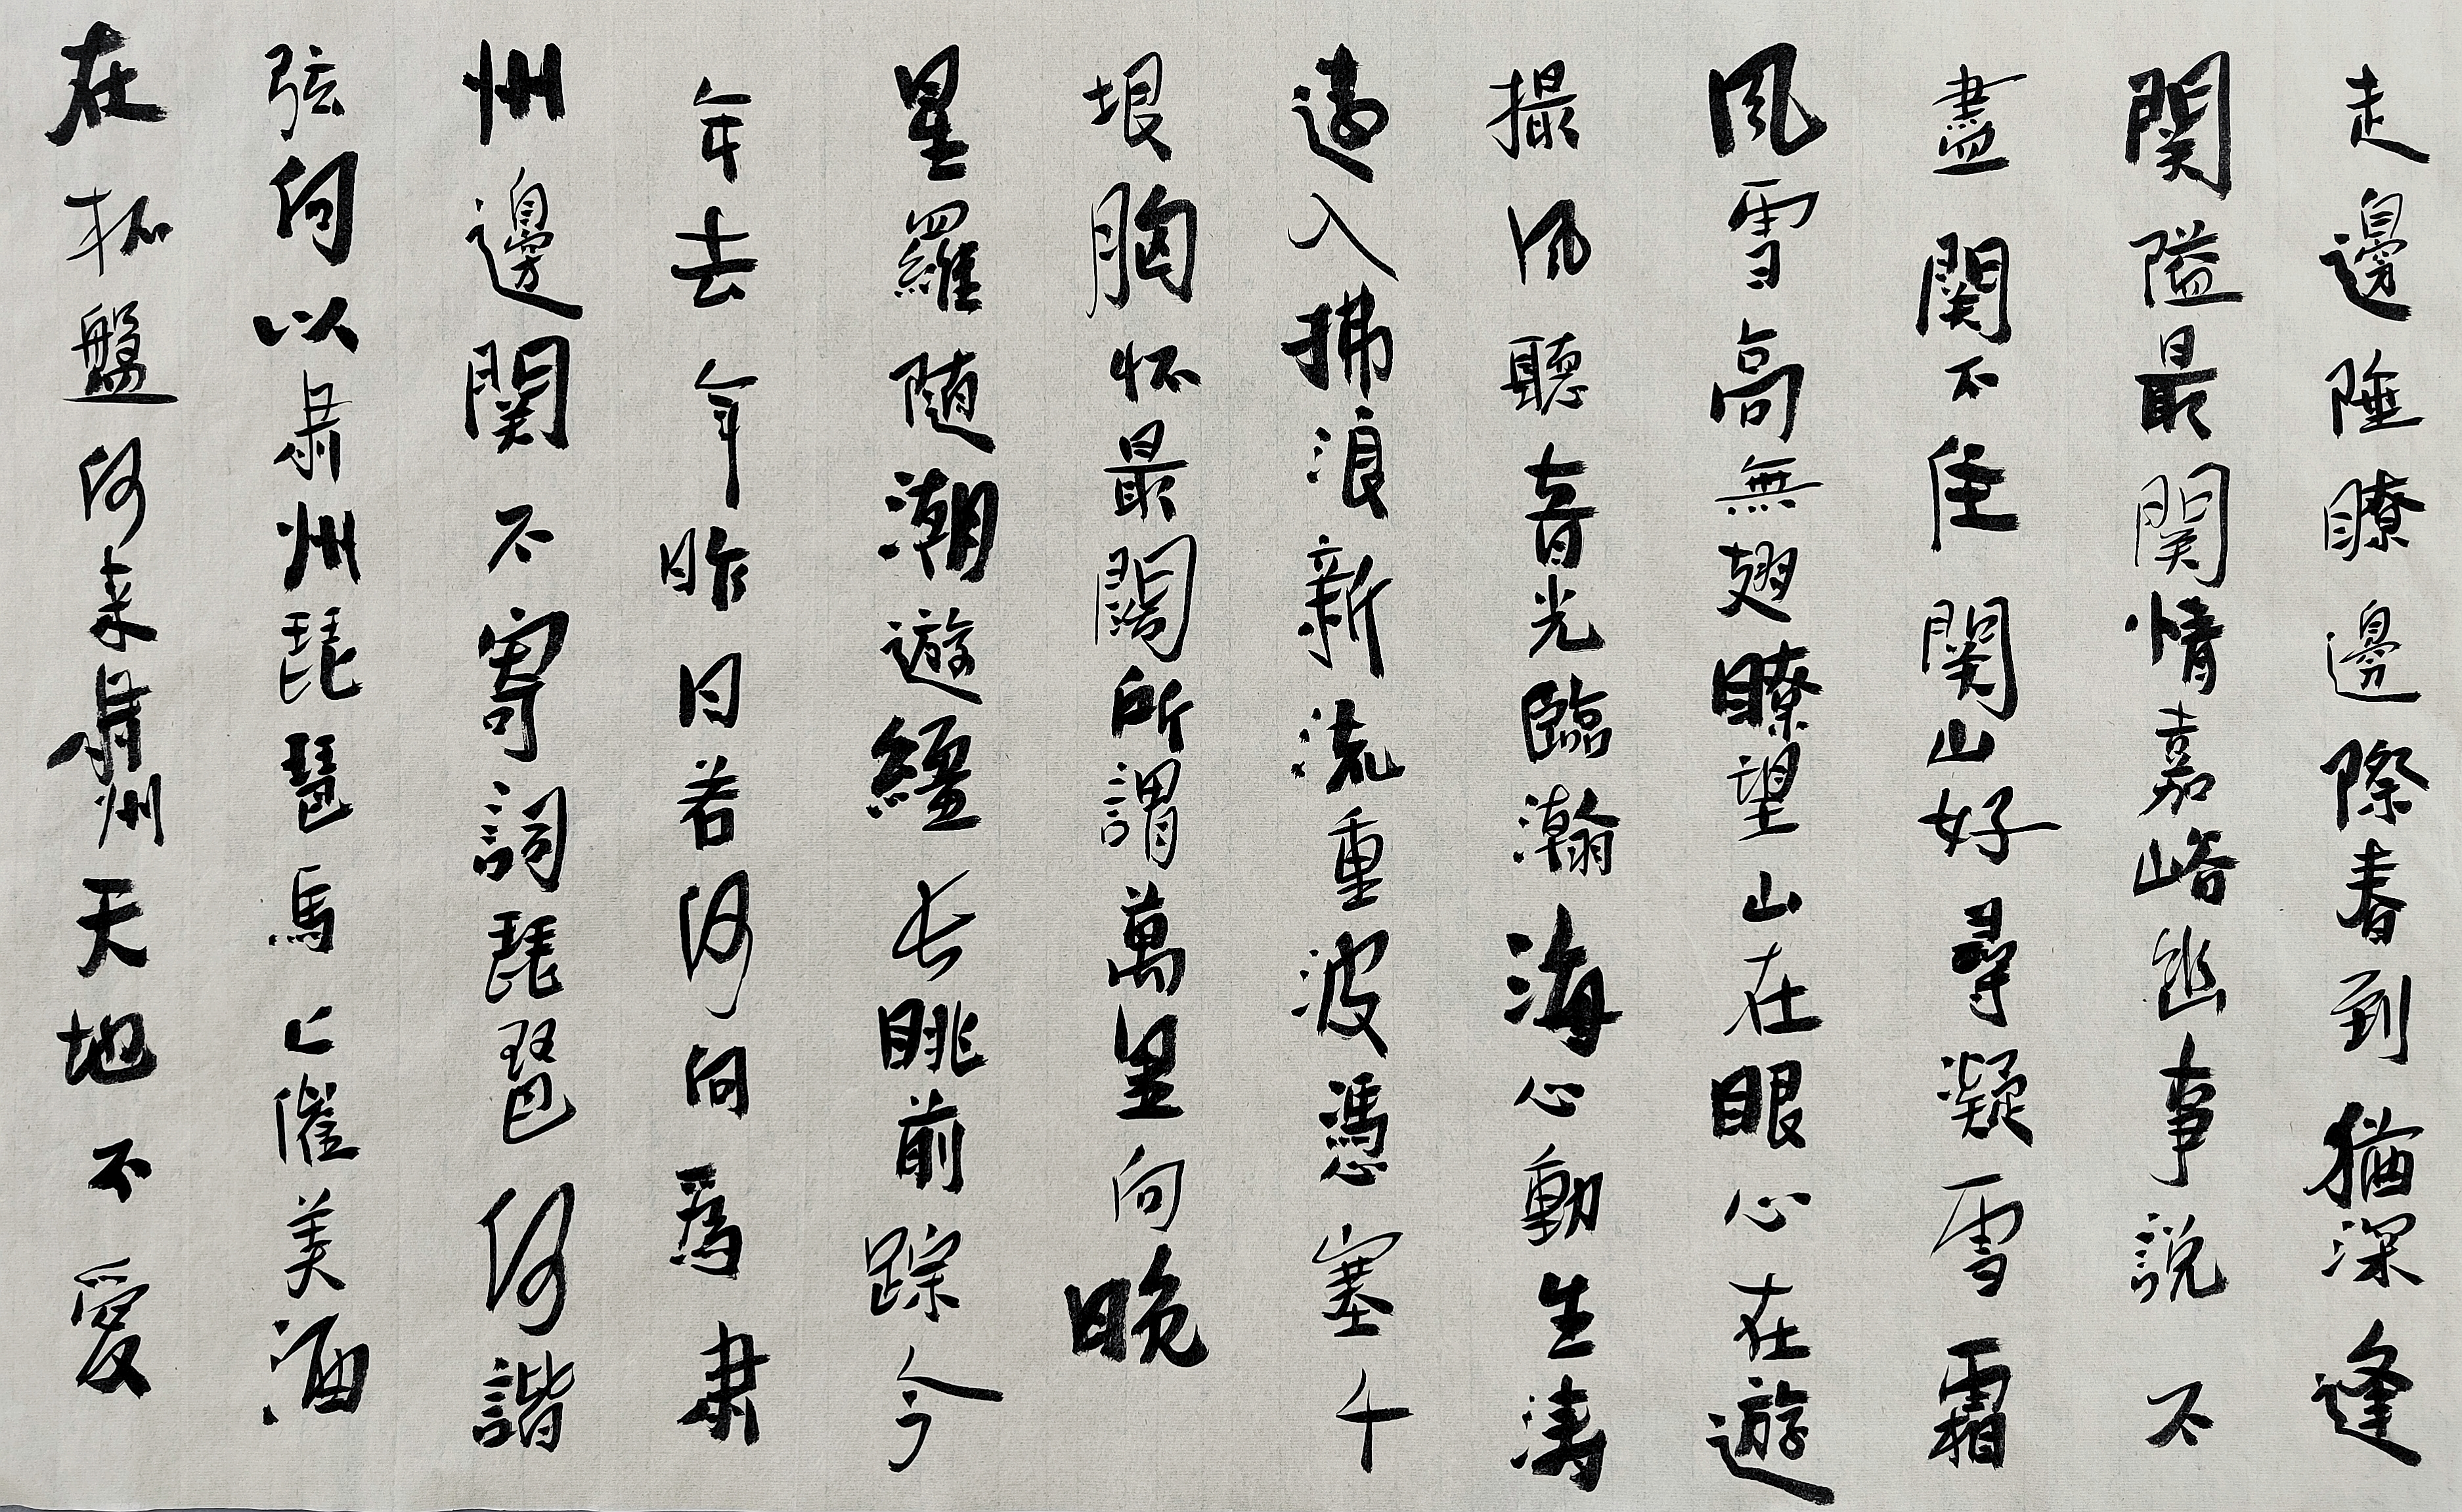 走邊陲瞭邊際春到猶深逢
関隘最関情嘉峪幽事説不
盡関不住関山好尋凝雪霜
風雪高無翅瞭望山在眼心在遊
撮風聽音光臨瀚海心動生濤
遠入拂浪新流重波憑塞千
垠胸怀最闊所謂萬里向晚
星羅随潮遊繮长眺前踪今
年去年昨日若何向爲肅
州邊関不寄詞琵琶何諧
弦向以肅州琵琶馬上催美酒
在柘盤何来肅州天地不爱